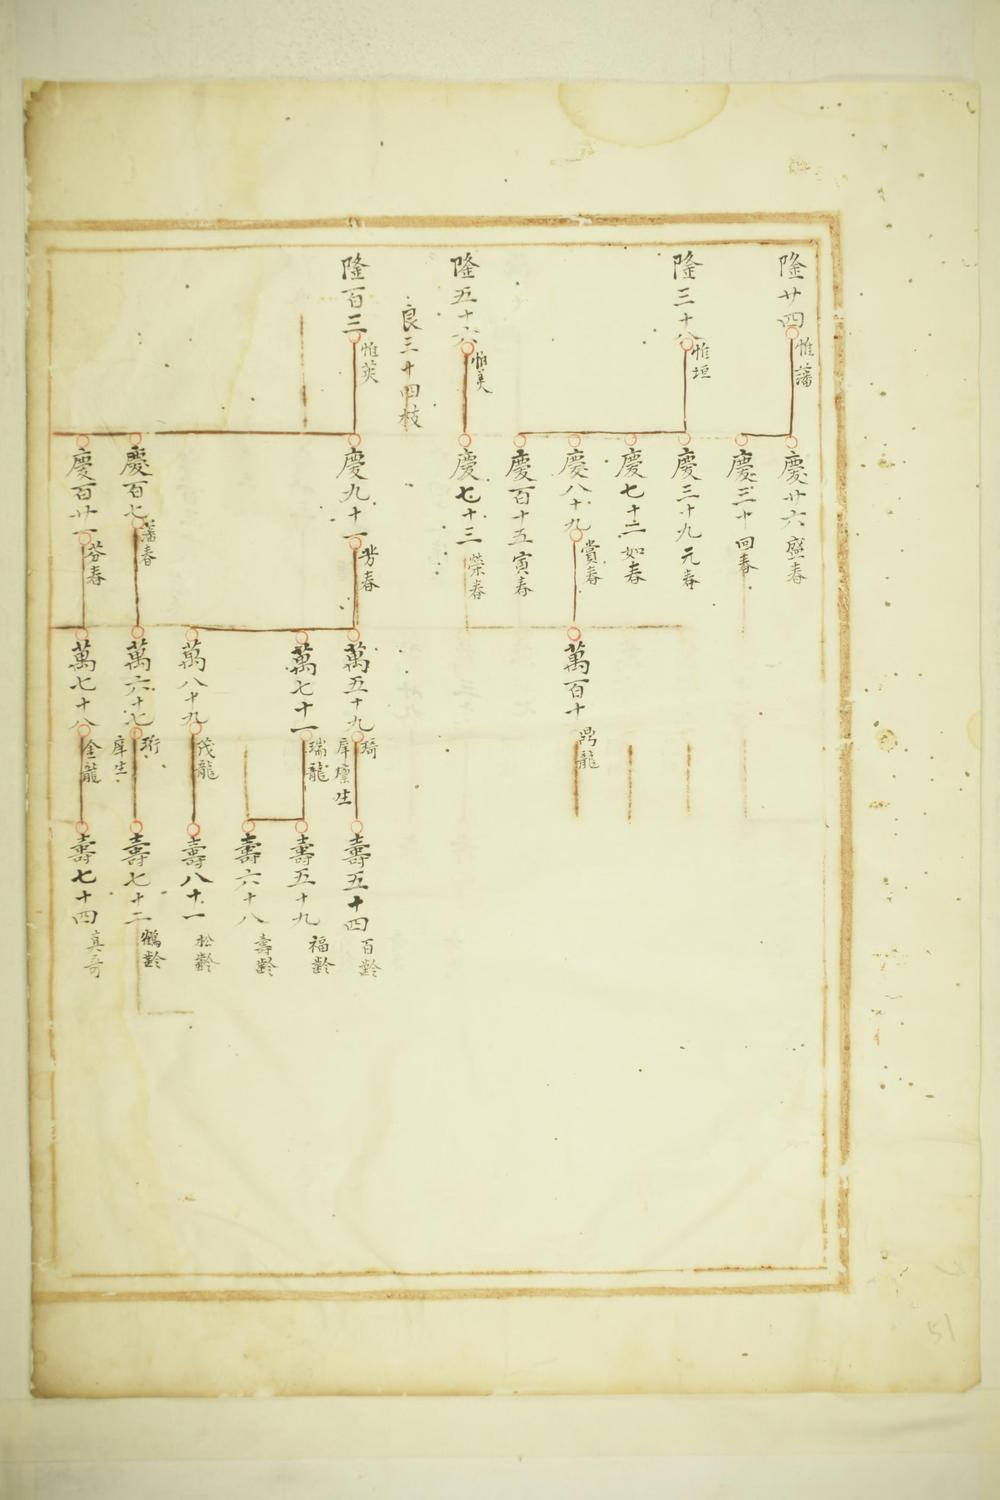 隆廿四
惟藩
隆三十八
惟垣
隆五十六
惟美
良三十四枝
隆百三
惟英
慶廿六 盛春
慶三十 回春
慶三十九 元春
慶七十二 如春
慶八十九
賞春
慶百十五 寅春
慶七十三 榮春
慶九十一
芳春
慶百七
藩春
慶百廿一
芬春
萬百十
鼎龍
萬五十九
琦
庠廩生
萬七十一
瑞龍
萬八十九
茂龍
萬六十七
珩
庠生
萬七十八
金龍
壽五十四
百齡
壽五十九
福齡
壽六十八
壽齡
壽八十一
松齡
壽七十二
鶴齡
壽七十四
真哥
51